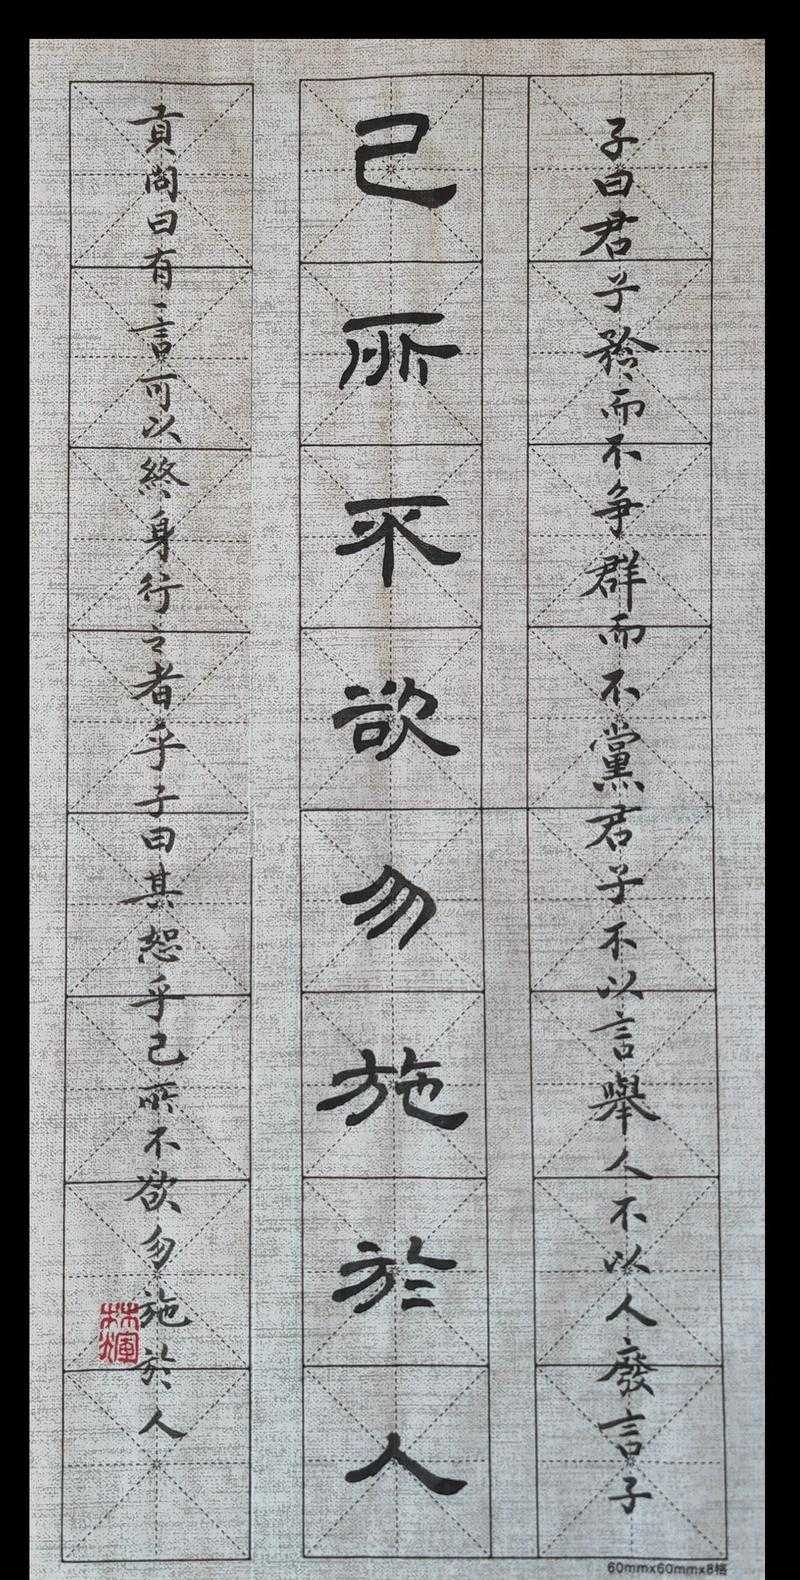 子曰君子矜而不争群而不黨君子不以言舉人不以人廢言子
己所不欲勿施於人
貢問曰有一言可以終身行之者乎子曰其恕乎己所不欲勿施於人
林輝
60mmx60mmx8格